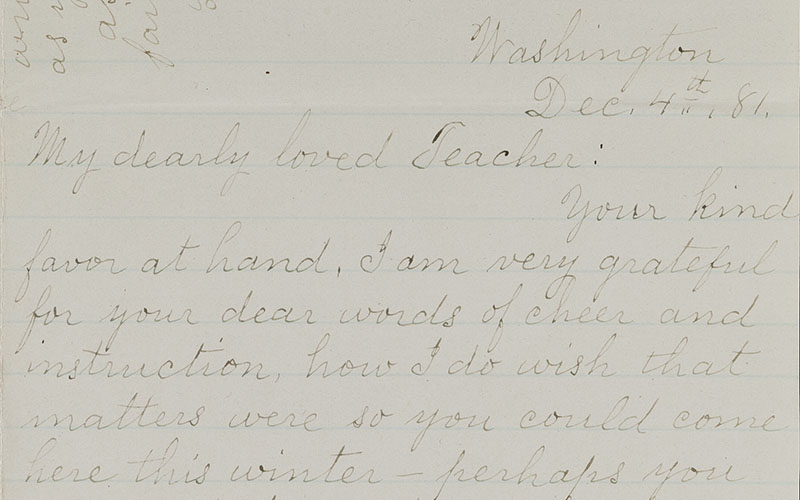 Washington
Dec. 4th, 81.
My dearly loved Teacher:
Your kind
favor at hand, I am very grateful
for your dear words of cheer and
instruction, how I do wish that
matters were so you could come
here this winter – perhaps you
as